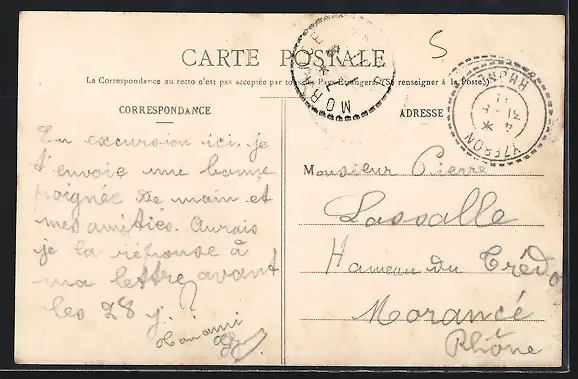 S
CARTE POSTALE
La Correspondance au recto n'est pas acceptée par tous les Pays Étrangers. (Se renseigner à la Poste.)
CORRESPONDANCE
ADRESSE
MORANCÉ
RHONE
En excursion ici, je
t'envoie une bonne
poignée de main et
mes amitiés. Aurais
je la réponse à
ma lettre avant
les 28 j. ?
Ton ami
Monsieur Pierre
Lassalle
Hameau du Crédo
Morancé
Rhône